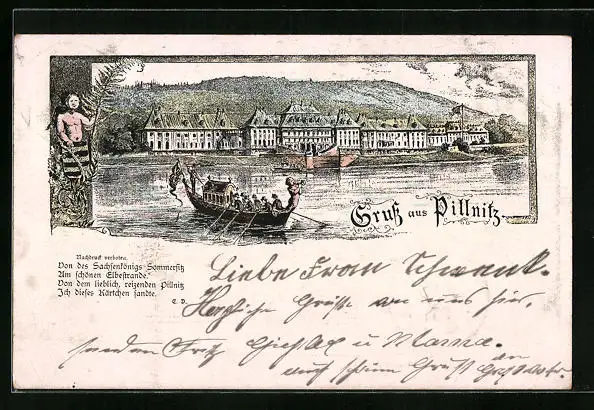 Gruß aus Pillnitz
Nachdruck verboten.
Von des Sachsenkönigs Sommersitz
Am schönen Elbestrande.
Von dem lieblich, reizenden Pillnitz
Ich dieses Kärtchen sandte.
E. D.
Liebe Frau Schwenk.
Herzliche Grüße von uns hier,
senden Fritz u Mama.
auch schöne Grüße an